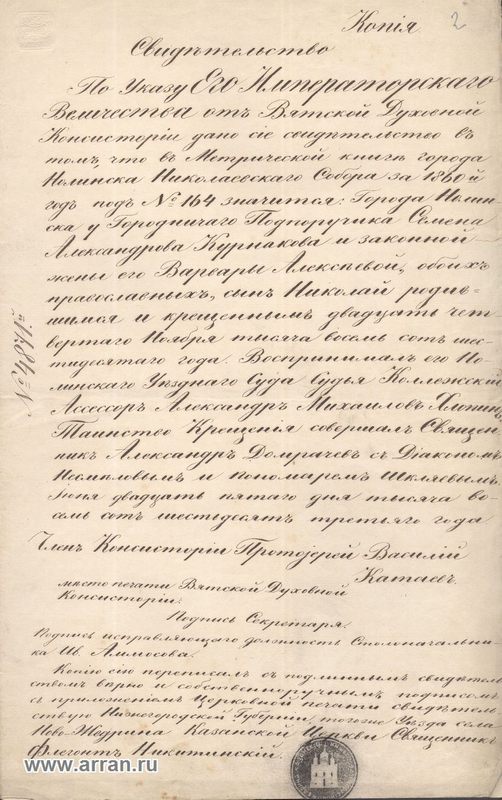 Копія 2
Свидѣтельство
По Указу Его Императорскаго
Величества отъ Вятской Духовной
Консисторіи дано сіе свидѣтельство въ
томъ, что въ Метрической книгѣ города
Нолинска Николаевскаго Собора за 1860 й
годъ подъ № 164 значится: Города Нолин-
ска у Городничаго Подпоручика Семена
Александрова Курнакова и законной
жены его Варвары Алексѣевой, обоихъ
православныхъ, сынъ Николай родив-
шимся и крещеннымъ двадцать чет-
вертаго Ноября тысяча восемь сотъ шес-
тидесятаго года. Воспринималъ его Но-
линскаго Уѣзднаго Суда Судья Коллежскій
Ассессоръ Александръ Михаиловъ
Таинство Крещенія совершалъ Священ-
никъ Александръ Домрачевъ съ Діакономъ
и пономаремъ Шкляевымъ.
Іюня двадцать пятаго дня тысяча во-
семь сотъ шестьдесятъ третьяго года
Членъ Консисторіи Протоіерей Василій
Катаевъ
мѣсто печати Вятской Духовной
Консисторіи.
Подпись Секретаря.
Подпись исправляющаго должность Столоначальни-
ка Ив. Аммосова.
Копію сію переписалъ съ подлиннымъ свидѣтель-
ствомъ вѣрно и собственноручнымъ подписомъ
съ приложеніемъ Церковной печати свидѣтель-
ствую Нижегородской Губерніи, тогоже Уѣзда села
Ново-Щедрина Казанской Церкви Священникъ
Флегонтъ Никитинскій.
www.arran.ru